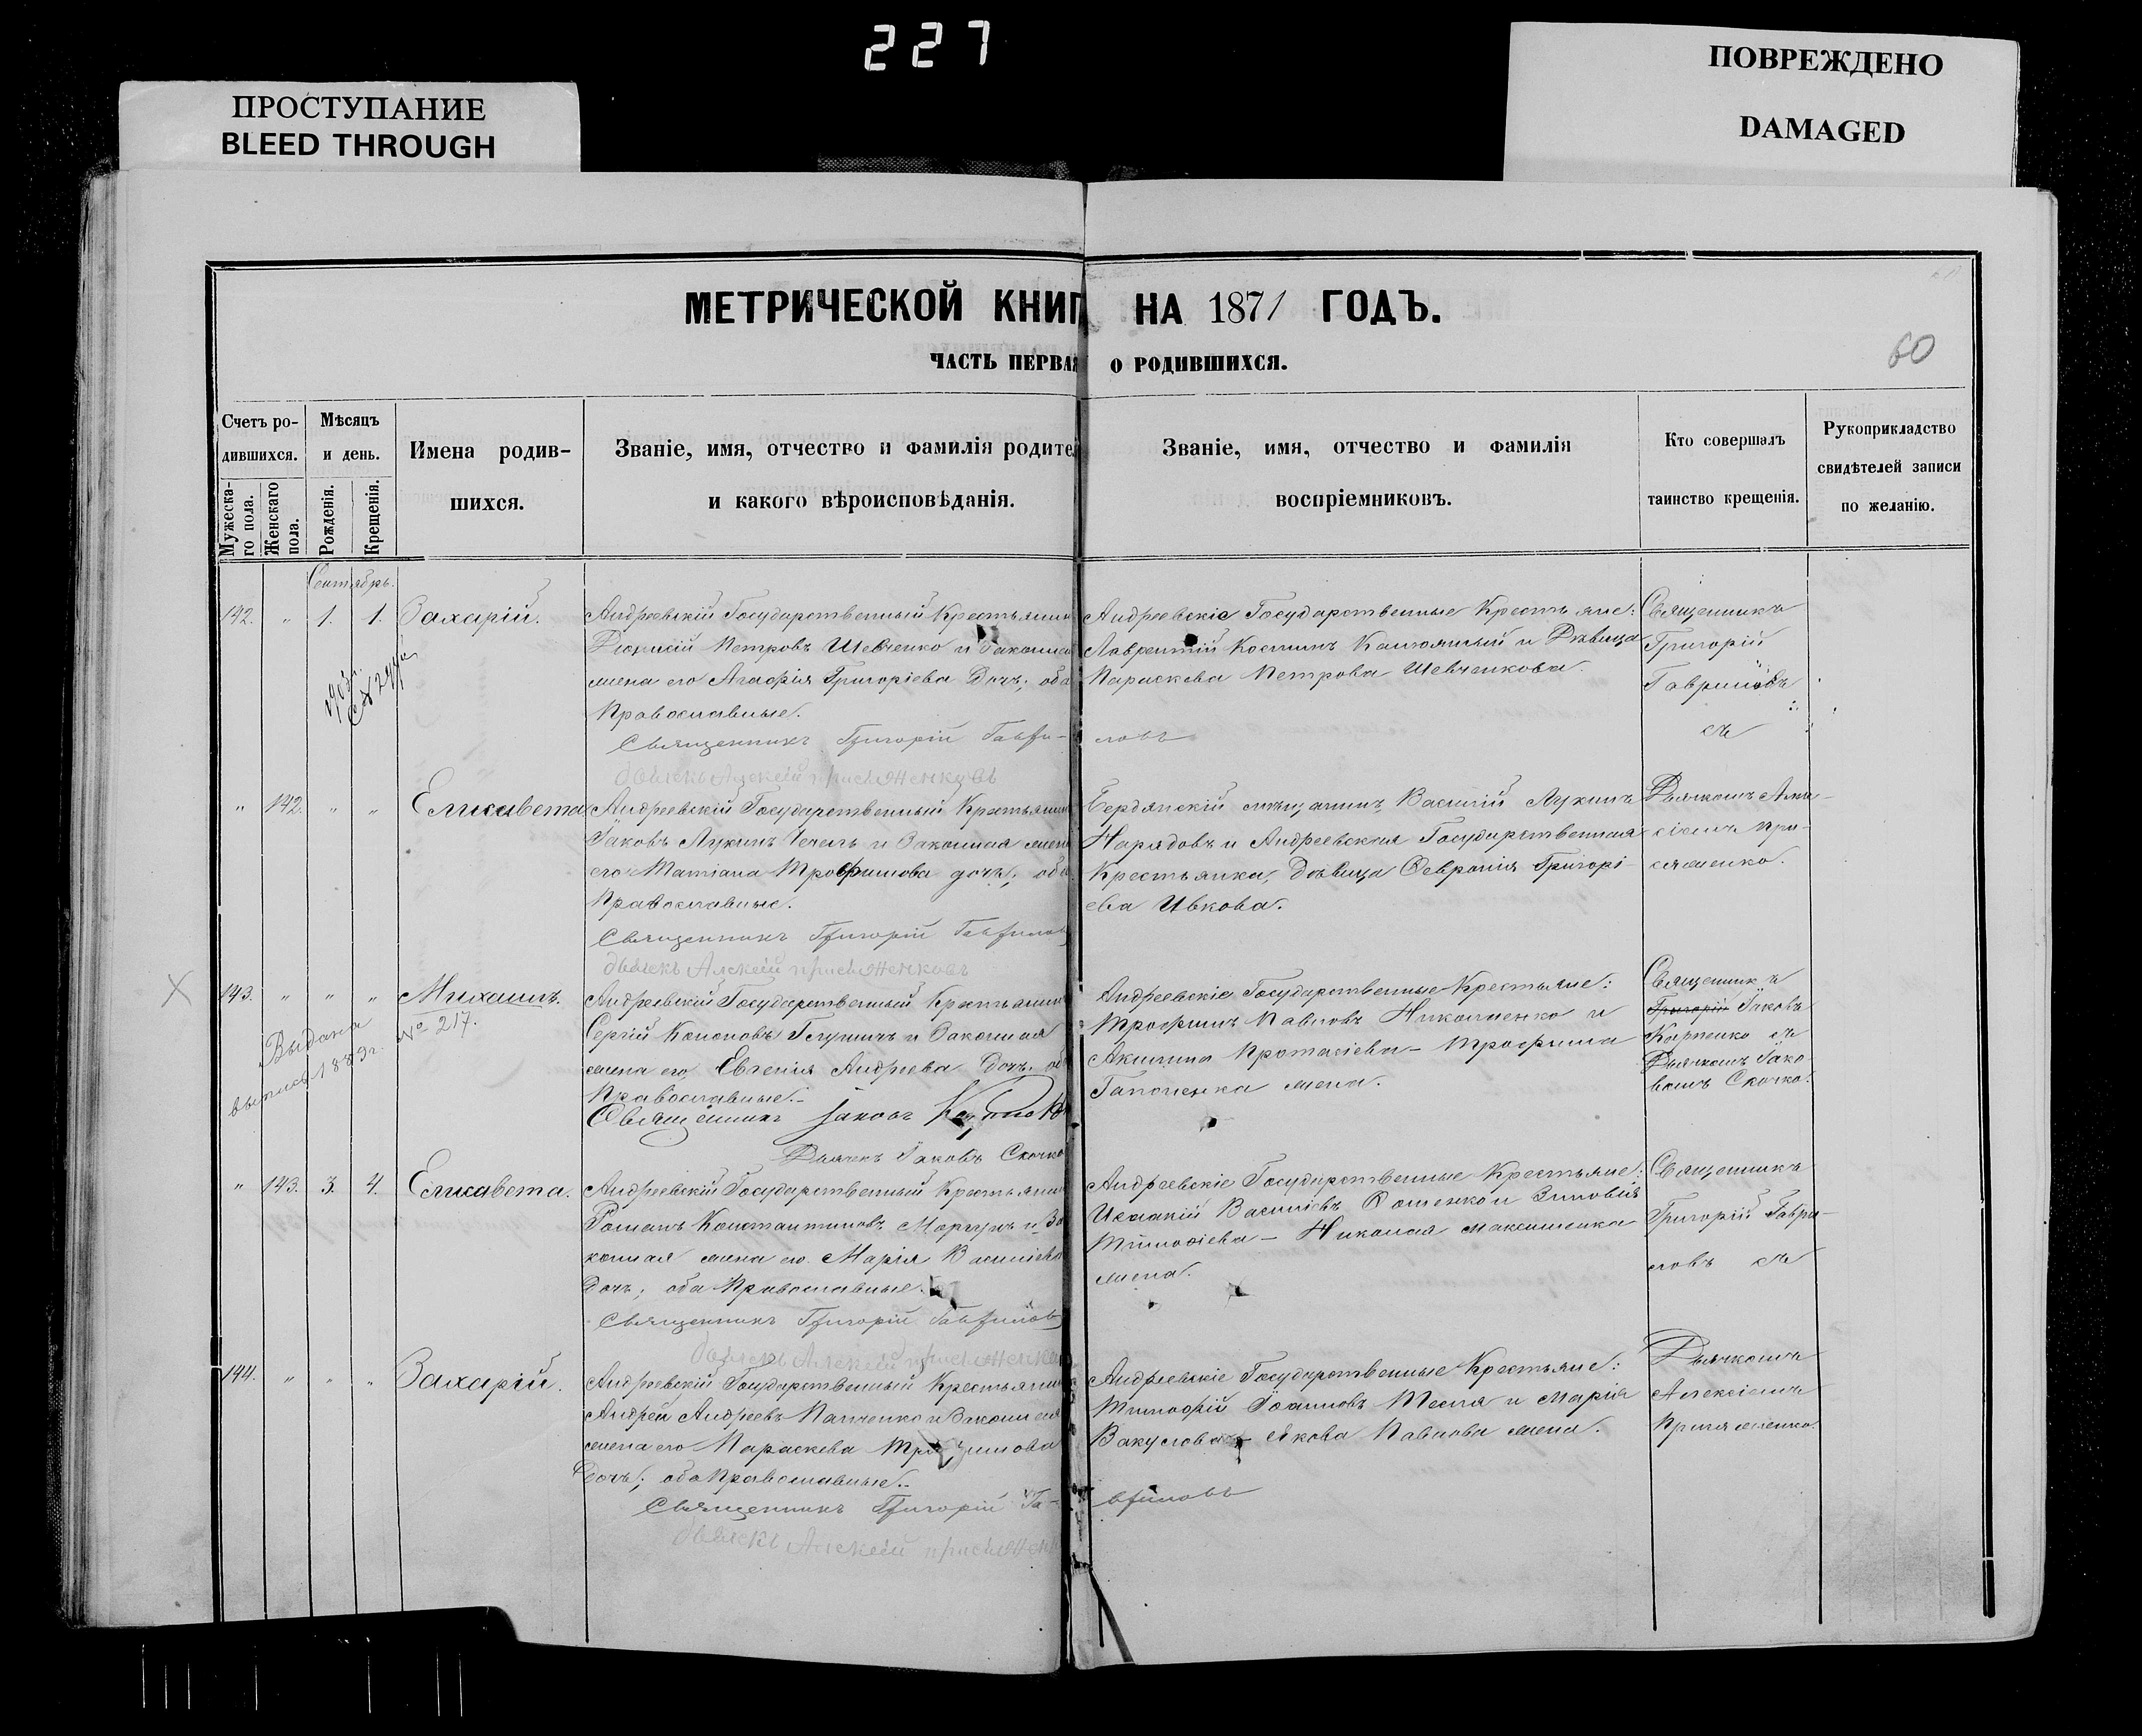 227
ПРОСТУПАНИЕ
BLEED THROUGH
ПОВРЕЖДЕНО
DAMAGED
МЕТРИЧЕСКОЙ КНИГ НА 1871 ГОДЪ.
ЧАСТЬ ПЕРВАЯ О РОДИВШИХСЯ.
60
Счетъ ро-
дившихся.
Мужеска-
го пола.
Женскаго
пола.
Мѣсяцъ
и день.
Рожденія.
Крещенія.
Имена родив-
шихся.
Званіе, имя, отчество и фамилія родител
и какого вѣроисповѣданія.
Званіе, имя, отчество и фамилія
воспріемниковъ.
Кто совершалъ
таинство крещенія.
Рукоприкладство
свидѣтелей записи
по желанію.
Сентябрь.
142. " 1. 1. Захарій.
Андреевскій Государственный Крестьянин
Діонисій Петровъ Шевченко и Законна
жена его Агафія Григоріева Дочь; оба
Православные.
Священникъ Григорій Гаври- ловъ
дьячекъ Алексій
Андреевскіе Государственные Крестьяне:
Лаврентій Костинъ и Дѣвица
Параскева Петрова Шевченкова.
Священникъ
Григорій
Гавриловъ
съ
" 142. " " Елисавета.
Андреевскій Государственный Крестьянин
Іаковъ Лукинъ Чечель и Законная жена
его Татіана Трофимова дочь; оба
Православные.
Священникъ Григорій Гаврилов
дьячекъ Алексій
Бердянскій мѣщанинъ Василій Лукинъ
Нарядовъ и Андреевская Государственная
Крестьянка, Дѣвица Февронія Григорі-
ева Ивкова.
Дьячкомъ Але-
ксіемъ При-
сяженко.
143. " " " Михаилъ.
№ 217.
Выдана
выпись 1889 г.
Андреевскій Государственный Крестьянин
Сергій Кононовъ и Законная
жена его Евгенія Андреева Дочь; об
Православные.
Священникъ Іаковъ
Дьячекъ Іаковъ Скочко
Андреевскіе Государственные Крестьяне:
Трофимъ Павловъ Николченко и
Акилина Протасіева - Трофима
Гапоненка жена.
Священникъ
Григорій Іаковъ
Карпенко съ
Дьячкомъ Іако-
вомъ Скочко.
" 143. 3. 4. Елисавета.
Андреевскій Государственный Крестьянин
Романъ Константиновъ Моргунъ и За
конная жена его Марія Василіева
Дочь; оба Православные.
Священникъ Григорій Гаврилов
дьячекъ Алексій
Андреевскіе Государственные Крестьяне:
Исаакій Васильевъ Фоменко и Зиновія
Тимофіева - Николая Максименка
жена.
Священникъ
Григорій Гаври-
ловъ съ
144. " " " Захарій.
Андреевскій Государственный Крестьянин
Андрей Андреевъ Панченко и Законная
жена его Параскева
Дочь; оба Православные.
Священникъ Григорій Га- вриловъ
дьячекъ Алексій
Андреевскіе Государственные Крестьяне:
Тимофій Іоанновъ Тесля и Марія
Вакулова - Якова Павлова жена.
Дьячкомъ
Алексіемъ
Присяженко.